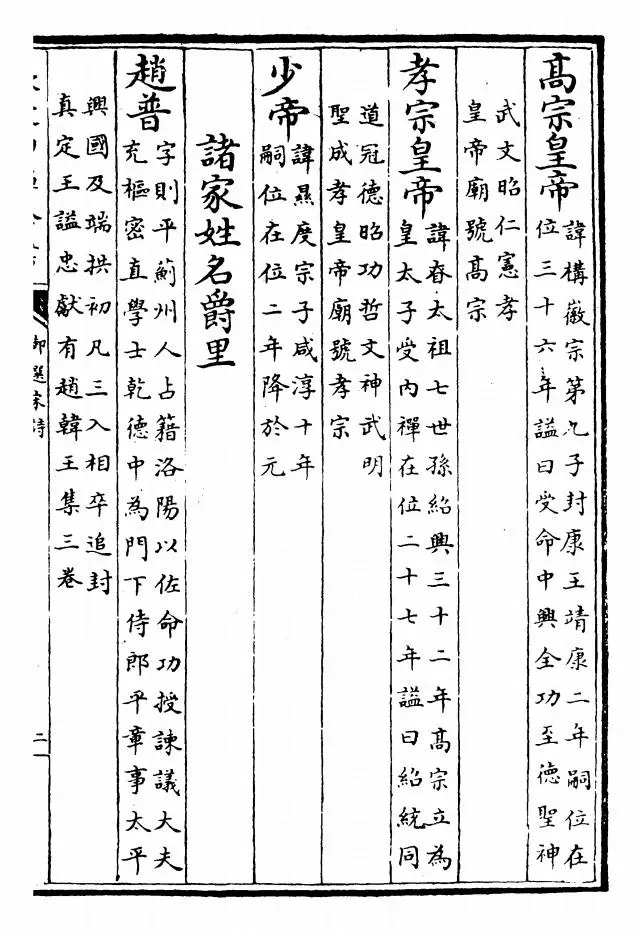 高宗皇帝
諱構徽宗第九子封康王靖康二年嗣位在
位三十六年謚曰受命中興全功至德聖神
武文昭仁憲孝
皇帝廟號高宗
孝宗皇帝
諱眘太祖七世孫紹興三十二年高宗立為
皇太子受內禪在位二十七年謚曰紹統同
道冠德昭功哲文神武明
聖成孝皇帝廟號孝宗
少帝
諱㬎度宗子咸淳十年
嗣位在位二年降於元
諸家姓名爵里
趙普
字則平薊州人占籍洛陽以佐命功授諫議大夫
充樞密直學士乾德中為門下侍郎平章事太平
興國及端拱初凡三入相卒追封
真定王謚忠獻有趙韓王集三卷
御選宋詩
二